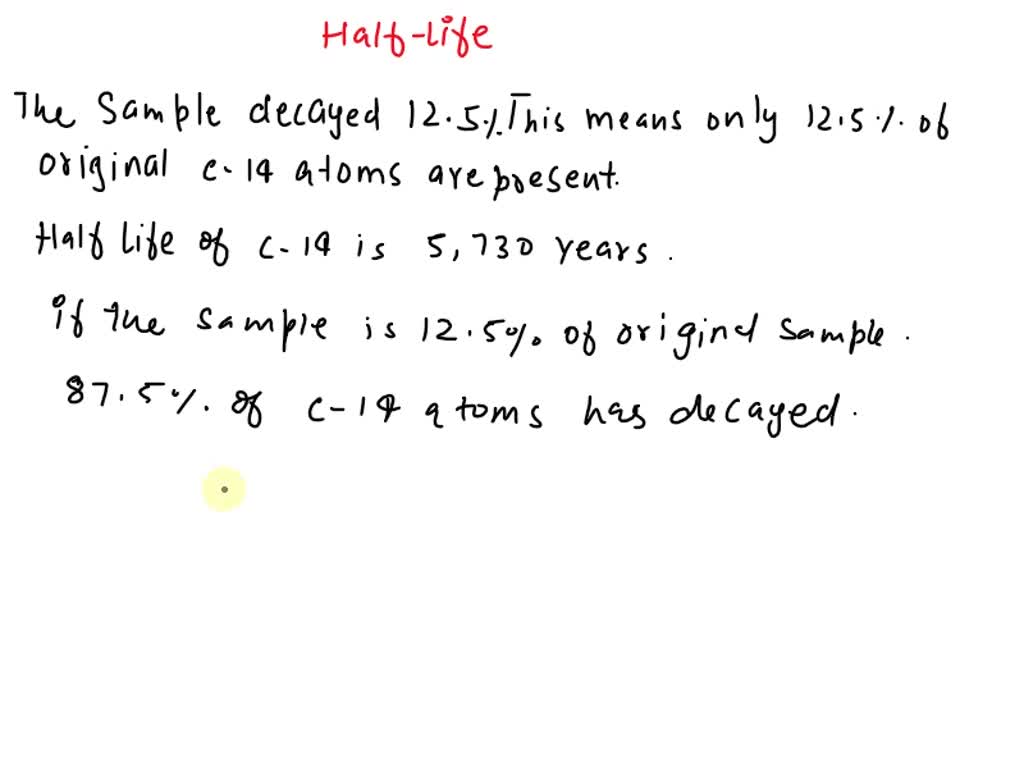 Half-life
The Sample decayed 12.5%. This means only 12.5%. of
original c-14 atoms are present.
Half life of c-14 is 5,730 years.
if the sample is 12.5% of original sample.
87.5%. of c-14 atoms has decayed.